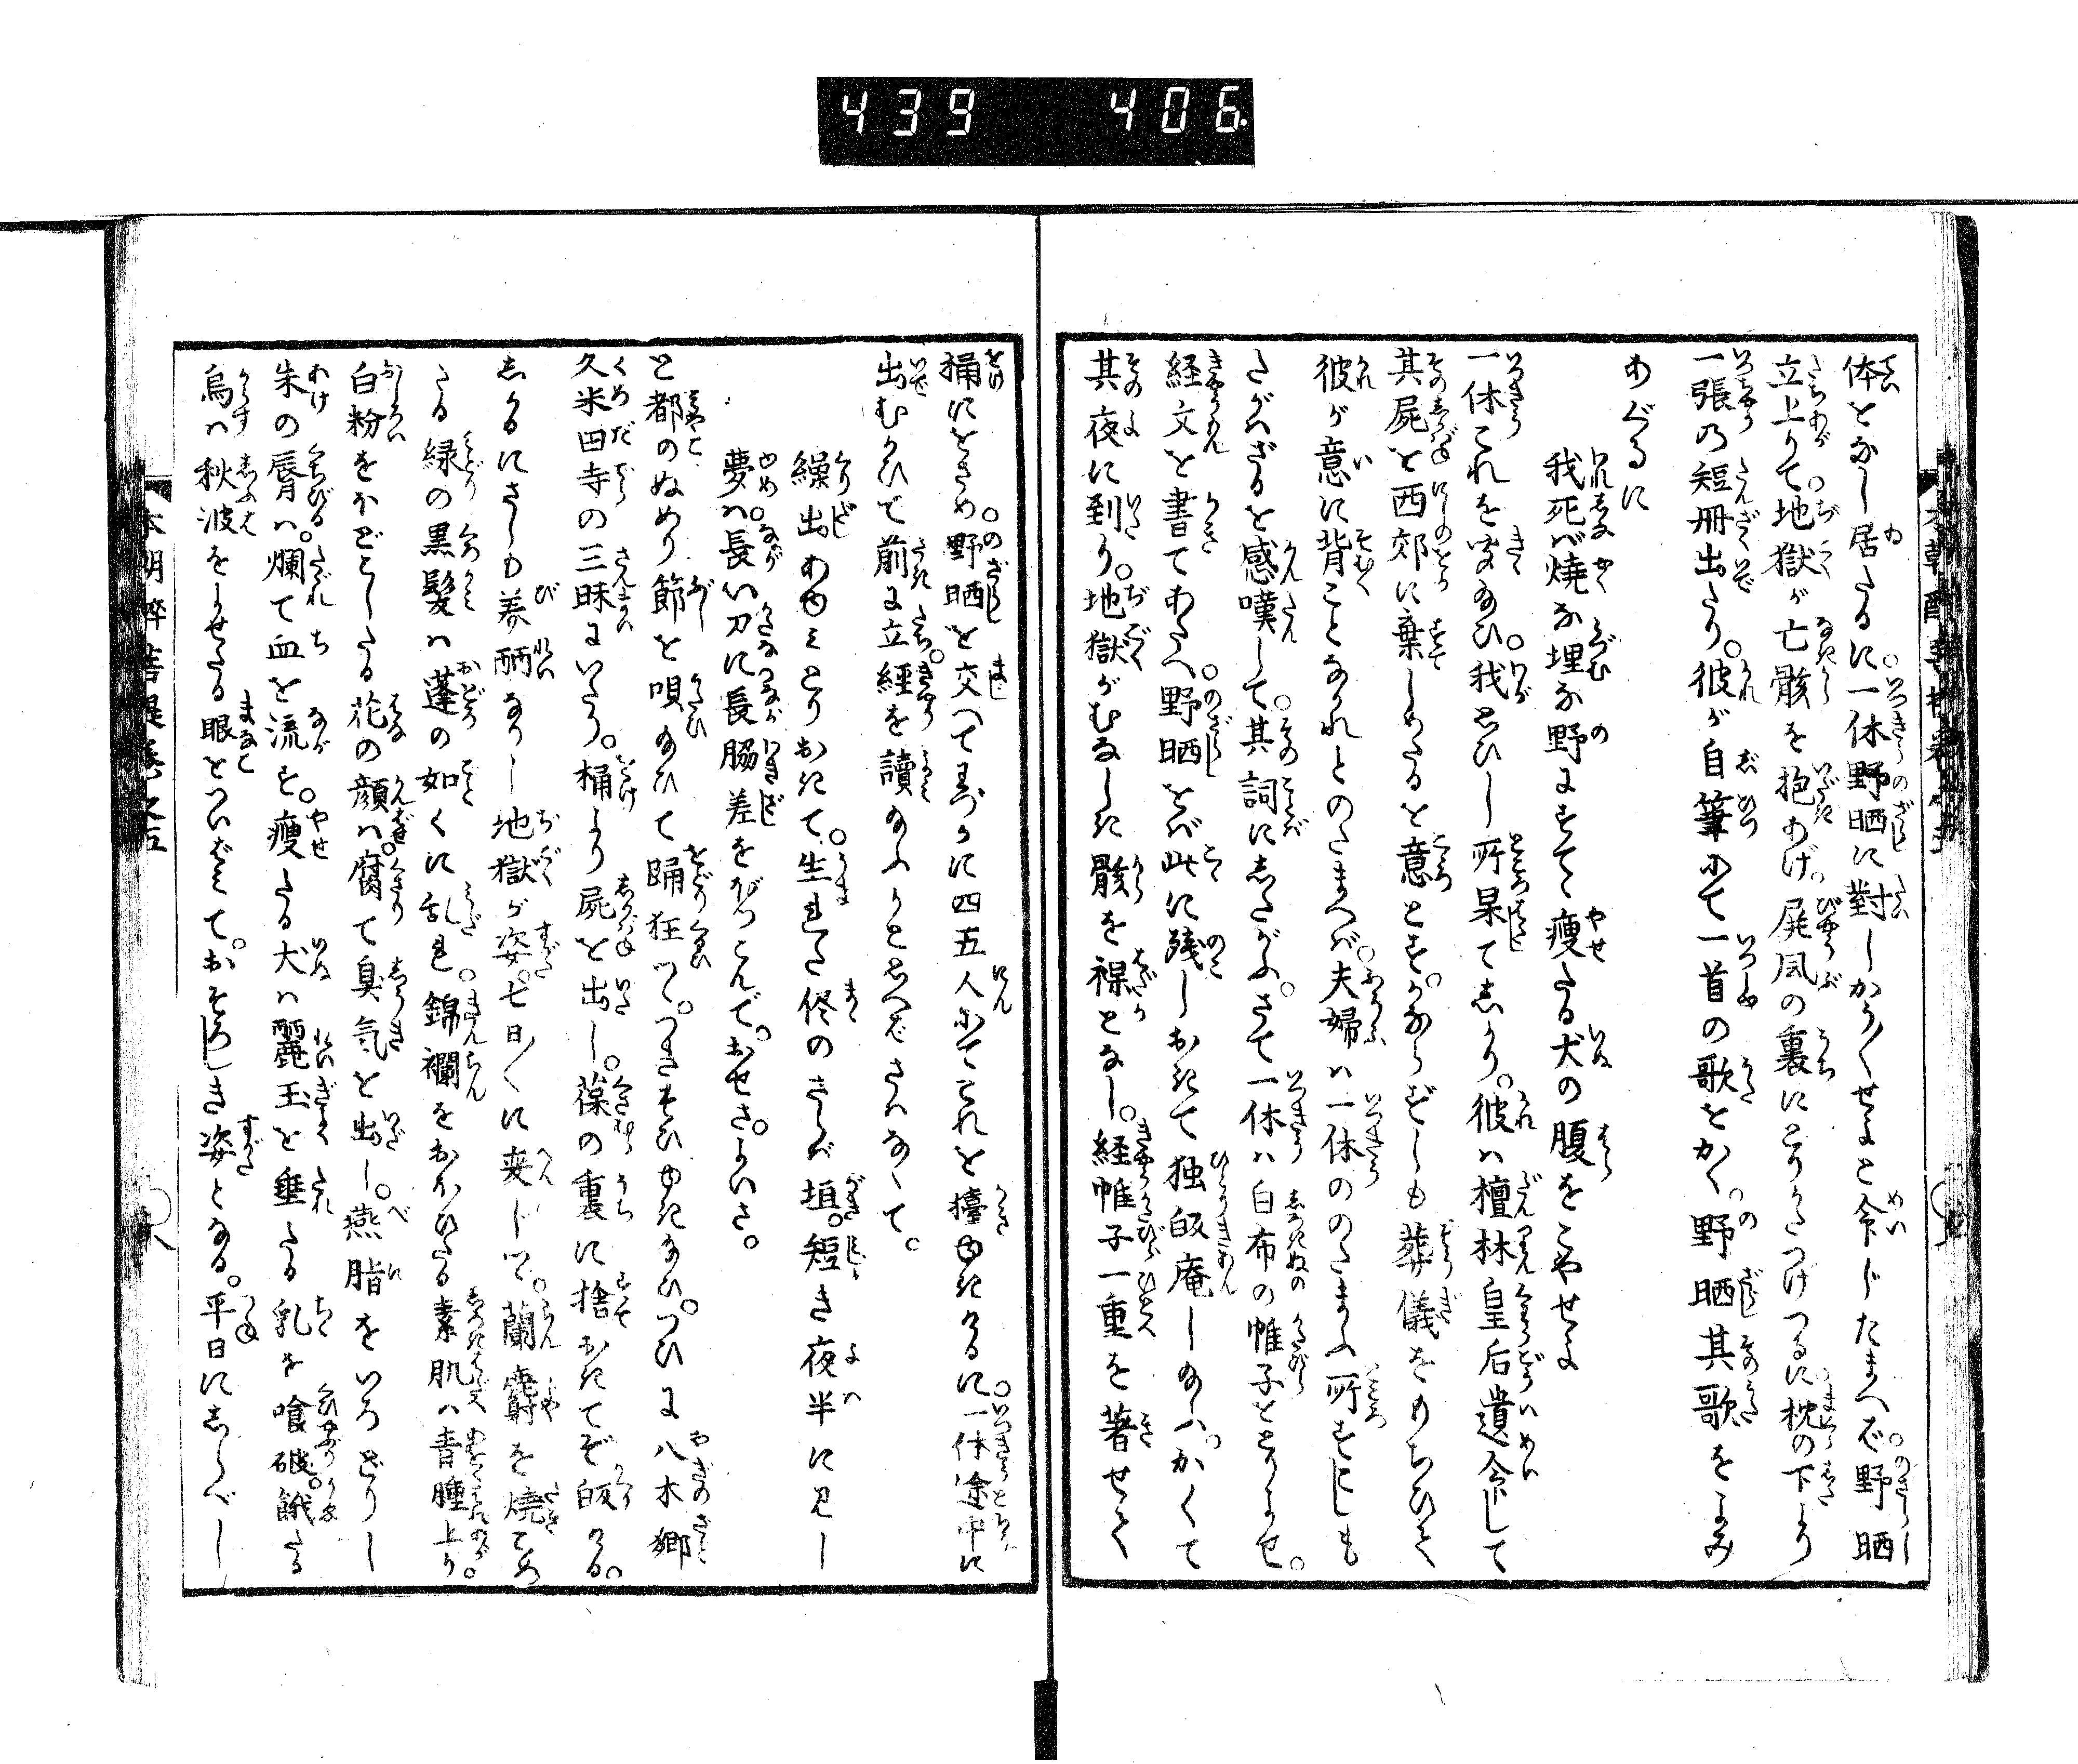 439 406
体となし居たるに。一休野晒に對しかう〳〵せよと命じたまへば。野晒
立上りて。地獄が亡骸を抱あげ。屍風の裏にとりかたつけつるに枕の下より
一張の短冊出たり。彼が自筆にて一首の歌をかく。野晒其歌をよみ
あぐるに
我死ば燒な埋な野にすてゝ痩たる犬の腹をこやせよ
一休これを聞給ひ。我思ひし所果てしかり。彼は檀林皇后遺命して
其屍を西郊に棄しめたるを意とす。かならずしも葬儀をもちひて
彼が意に背ことなかれとのたまへば。夫婦は一休ののたまふ所すこしも
たがはざるを感嘆して。其詞にしたがふ。さて一休は白布の帷子をとりよせ。
経文を書てあたへ。野晒をば此に残しおきて独皈庵し給ふ。かくて
其夜に到り。地獄がむなしき骸を裸となし。経帷子一重を著せて
桶にをさめ。野晒を交へてわづかに四五人にてこれを擡ゆきけるに。一休途中に
出むかひて前に立経を讀給ふかと思へばさはなくて。
繰出わゆミとりおきて。生れた侭のきしが垣。短き夜半に見し
夢は。長い刀に長脇差をぼつこんで。おせさ。よいさ。
と都のぬめり節を唄給ひて踊狂ひつゝ。つきそひゆき給ひ。つひに八木郷
久米田寺の三昧にいたり。桶より屍を出し。葆の裏に捨おきてぞ皈ける。
しかるにさしも美麗なりし地獄が姿。七日〳〵に変じつゝ。蘭麝を燒こめ
たる緑の黒髪は蓬の如くに乱れ。錦襴をおほひたる素肌は青腫上り。
白粉をほどこしたる花の顔は。腐て臭気を出し。燕脂をいろどりし
朱の唇は。爛て血を流す。痩たる犬は麗玉を垂たる乳を喰破。餓たる
烏は秋波をよせたる眼をついばミて。おそろしき姿となる。平日にしらべし